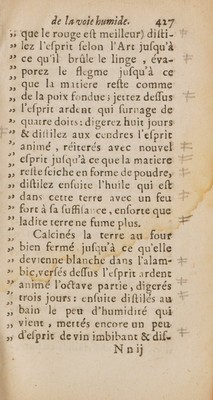 de la voie humide. 427
„ que le rouge est meilleur) disti-
„ lez l'esprit selon l'Art jusqu'à
„ ce qu'il brûle le linge , éva-
„ porez le flegme jusqu'à ce
„ que la matiere reste comme
„ de la poix fonduë ; jettez dessus
„ l'esprit ardent qui surnage de
„ quatre doits : digerez huit jours
„ & distilez aux cendres l'esprit
„ animé , réiterés avec nouvel
„ esprit jusqu'à ce que la matiere
„ reste seiche en forme de poudre,
„ distilez ensuite l'huile qui est
„ dans cette terre avec un feu
„ fort à sa suffisance , ensorte que
„ ladite terre ne fume plus.
„ Calcinés la terre au four
„ bien fermé jusqu'à ce qu'elle
„ devienne blanche dans l'alam-
„ bic, versés dessus l'esprit ardent
„ animé l'octave partie , digerés
„ trois jours : ensuite distilés au
„ bain le peu d'humidité qui
„ vient , mettés encore un peu
„ d'esprit de vin imbibant & dis-
N n ij